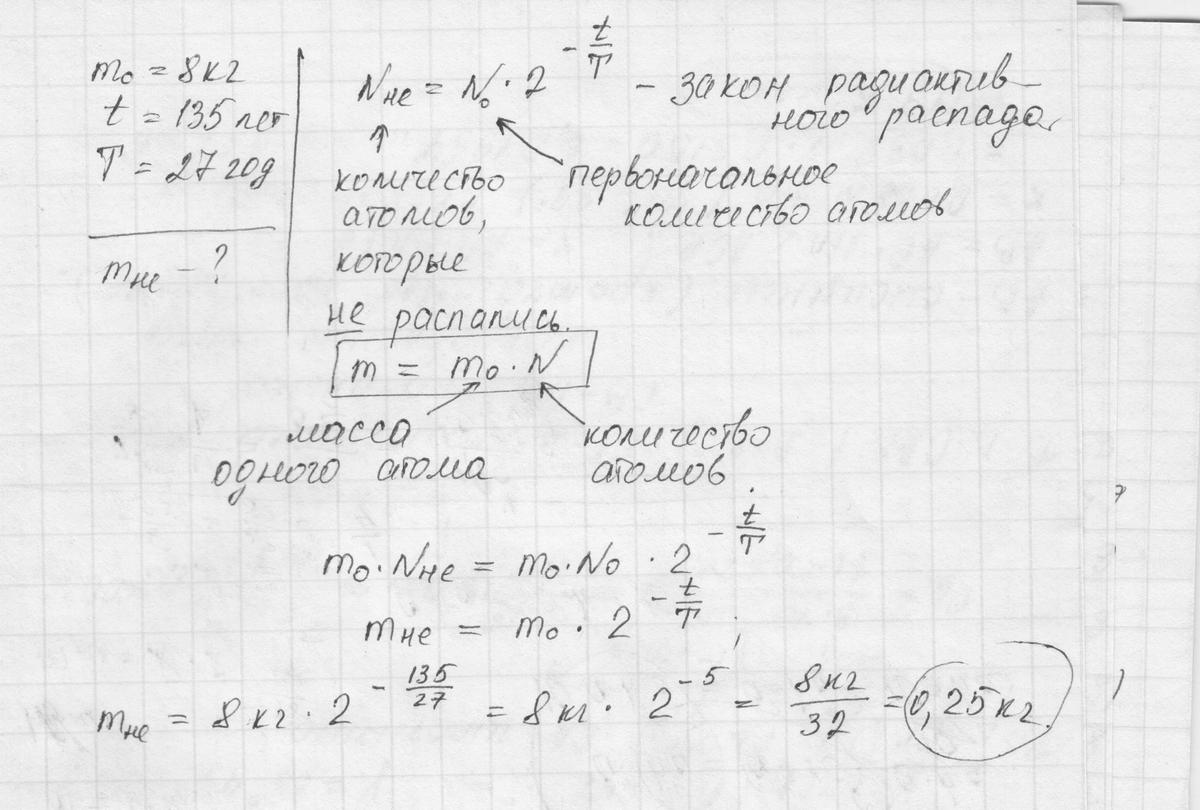 m₀ = 8 кг
t = 135 лет
T = 27 год
mне - ?
Nне = N₀ · 2^(-t/T) - закон радиактив-
ного распада
количество
атомов,
которые
не распались.
первоначальное
количество атомов
m = m₀ · N
масса
одного атома
количество
атомов.
m₀ · Nне = m₀ · N₀ · 2^(-t/T)
mне = m₀ · 2^(-t/T) ;
mне = 8 кг · 2^(-135/27) = 8 кг · 2^(-5) = 8кг/32 = 0,25 кг.